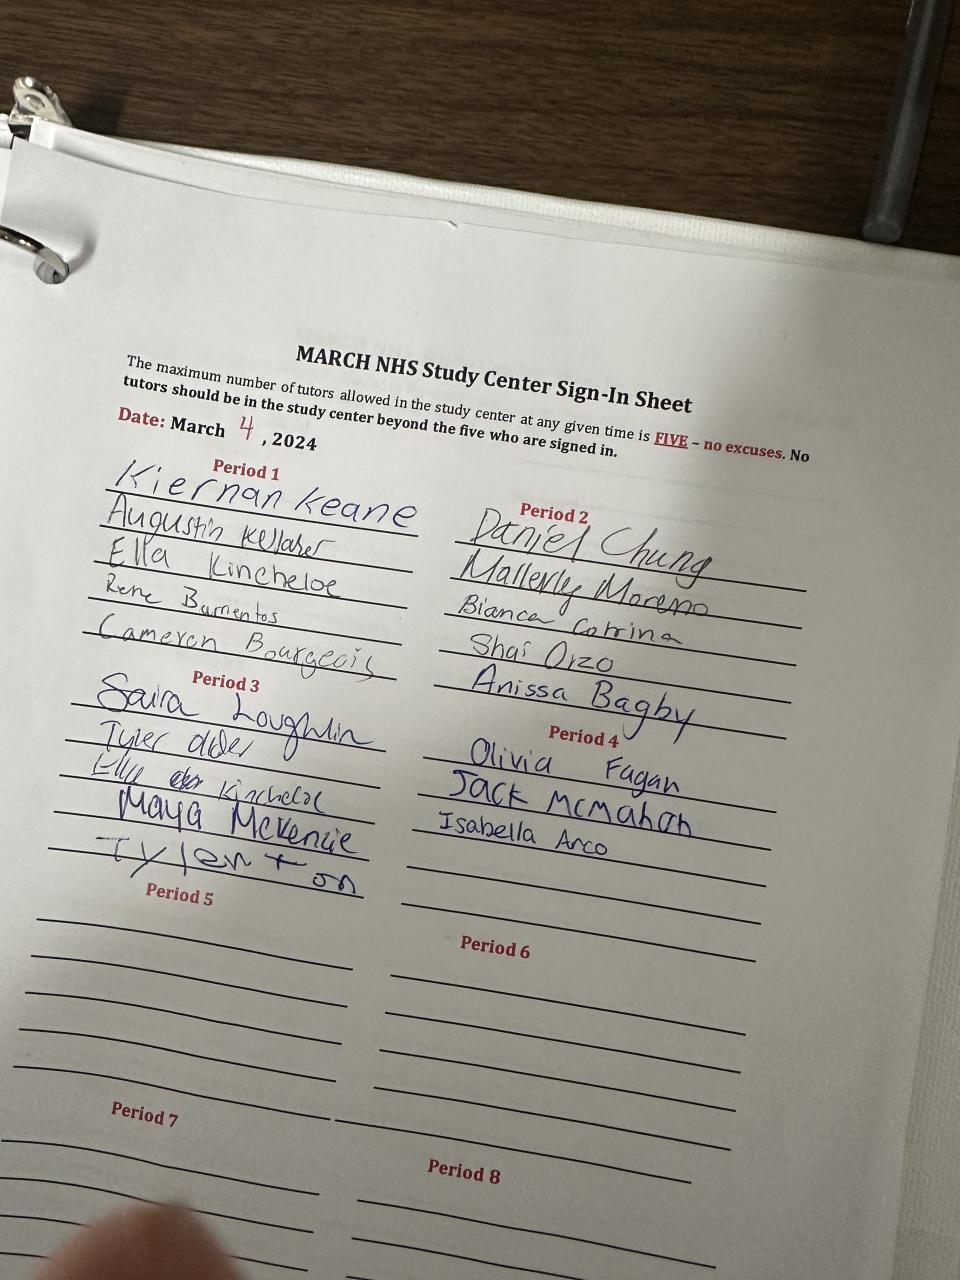 MARCH NHS Study Center Sign-In Sheet
The maximum number of tutors allowed in the study center at any given time is FIVE – no excuses. No
tutors should be in the study center beyond the five who are signed in.
Date: March 4, 2024
Period 1
Kiernan Keane
Augustin
Ella Kincheloe
Rene Barrientos
Cameron Bourgeois
Period 2
Daniel Chung
Mallerly Moreno
Bianca Cotrina
Shai Orzo
Anissa Bagby
Period 3
Saira Loughlin
Tyler
Ella Kincheloe
Maya McKenzie
Period 4
Olivia Fagan
Jack McMahon
Isabella Arco
Period 5
Period 6
Period 7
Period 8